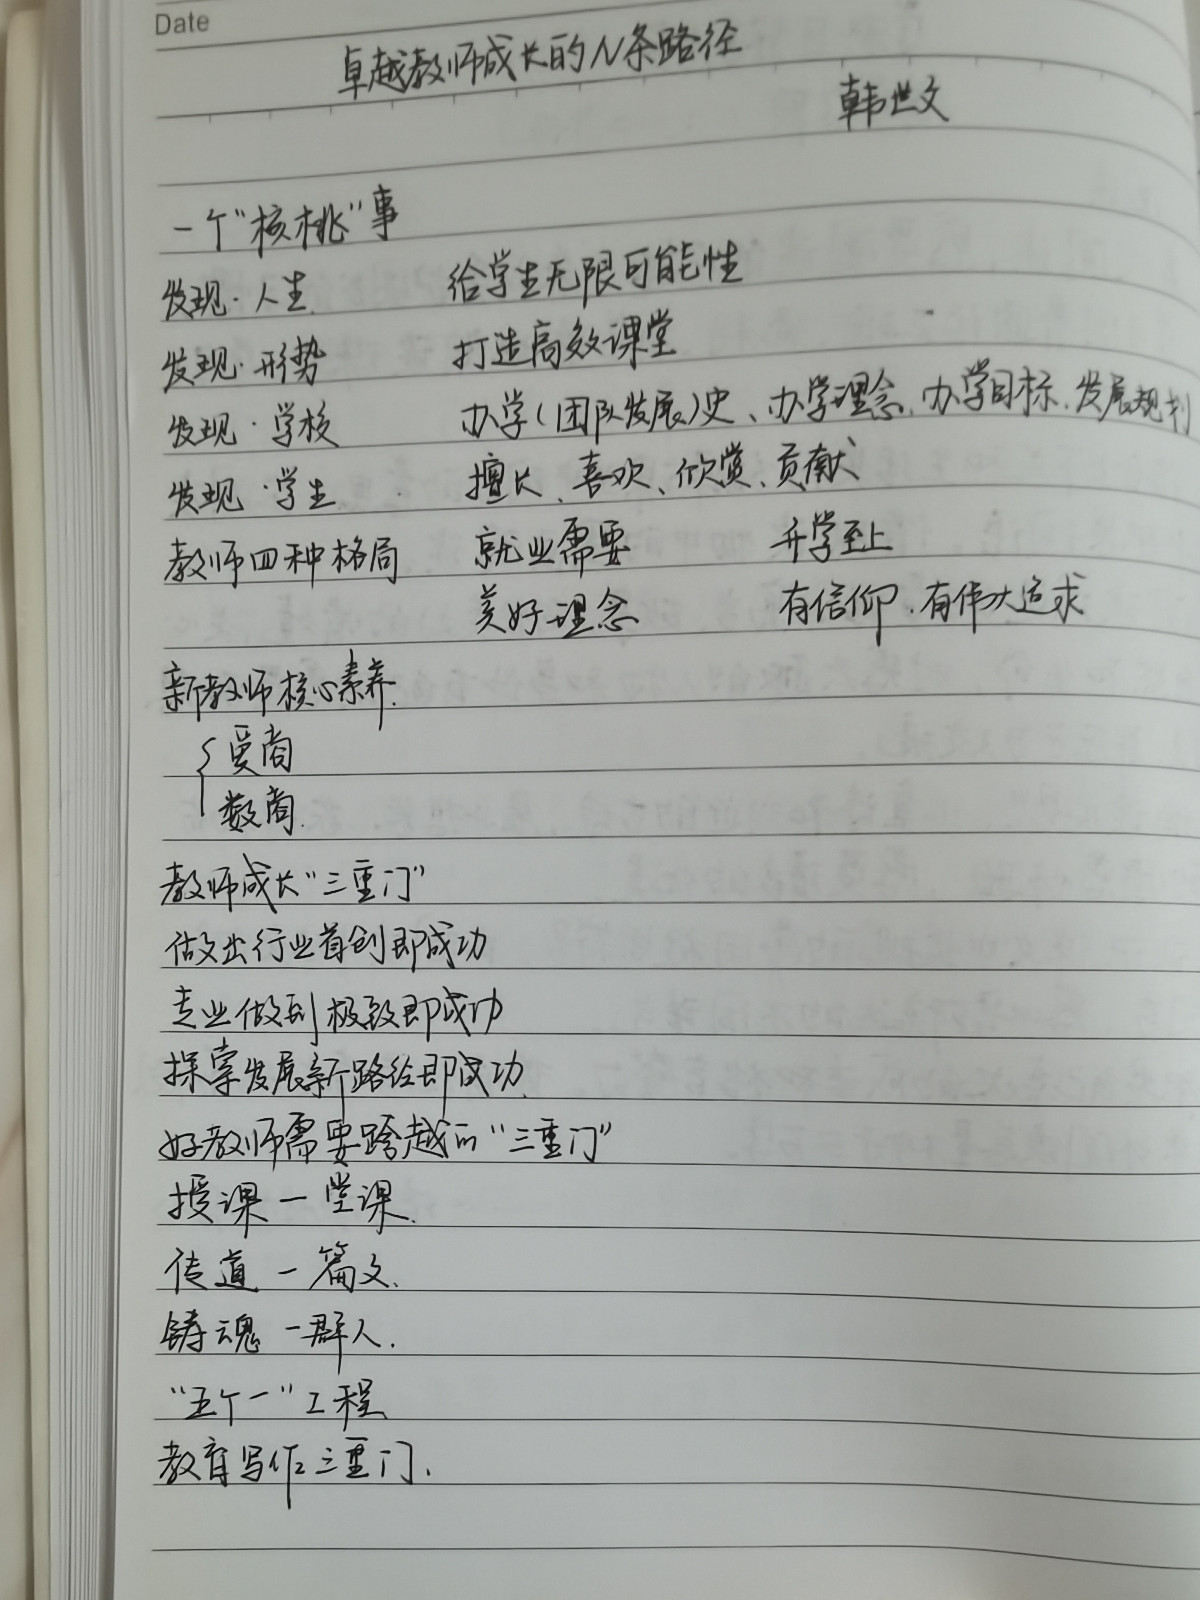 Date
卓越教师成长的N条路径
韩世文
一个“核桃”事
发现·人生 给学生无限可能性
发现·形势 打造高效课堂
发现·学校 办学(团队发展)史、办学理念、办学目标、发展规划
发现·学生 擅长、喜欢、欣赏、贡献
教师四种格局 就业需要 升学至上
美好理念 有信仰、有伟大追求
新教师核心素养.
{ 爱商
数商.
教师成长“三重门”
做出行业首创即成功
专业做到极致即成功
探索发展新路径即成功
好教师需要跨越的“三重门”
授课一堂课.
传道一篇文.
铸魂一群人.
“五个一”工程
教育写作三重门.